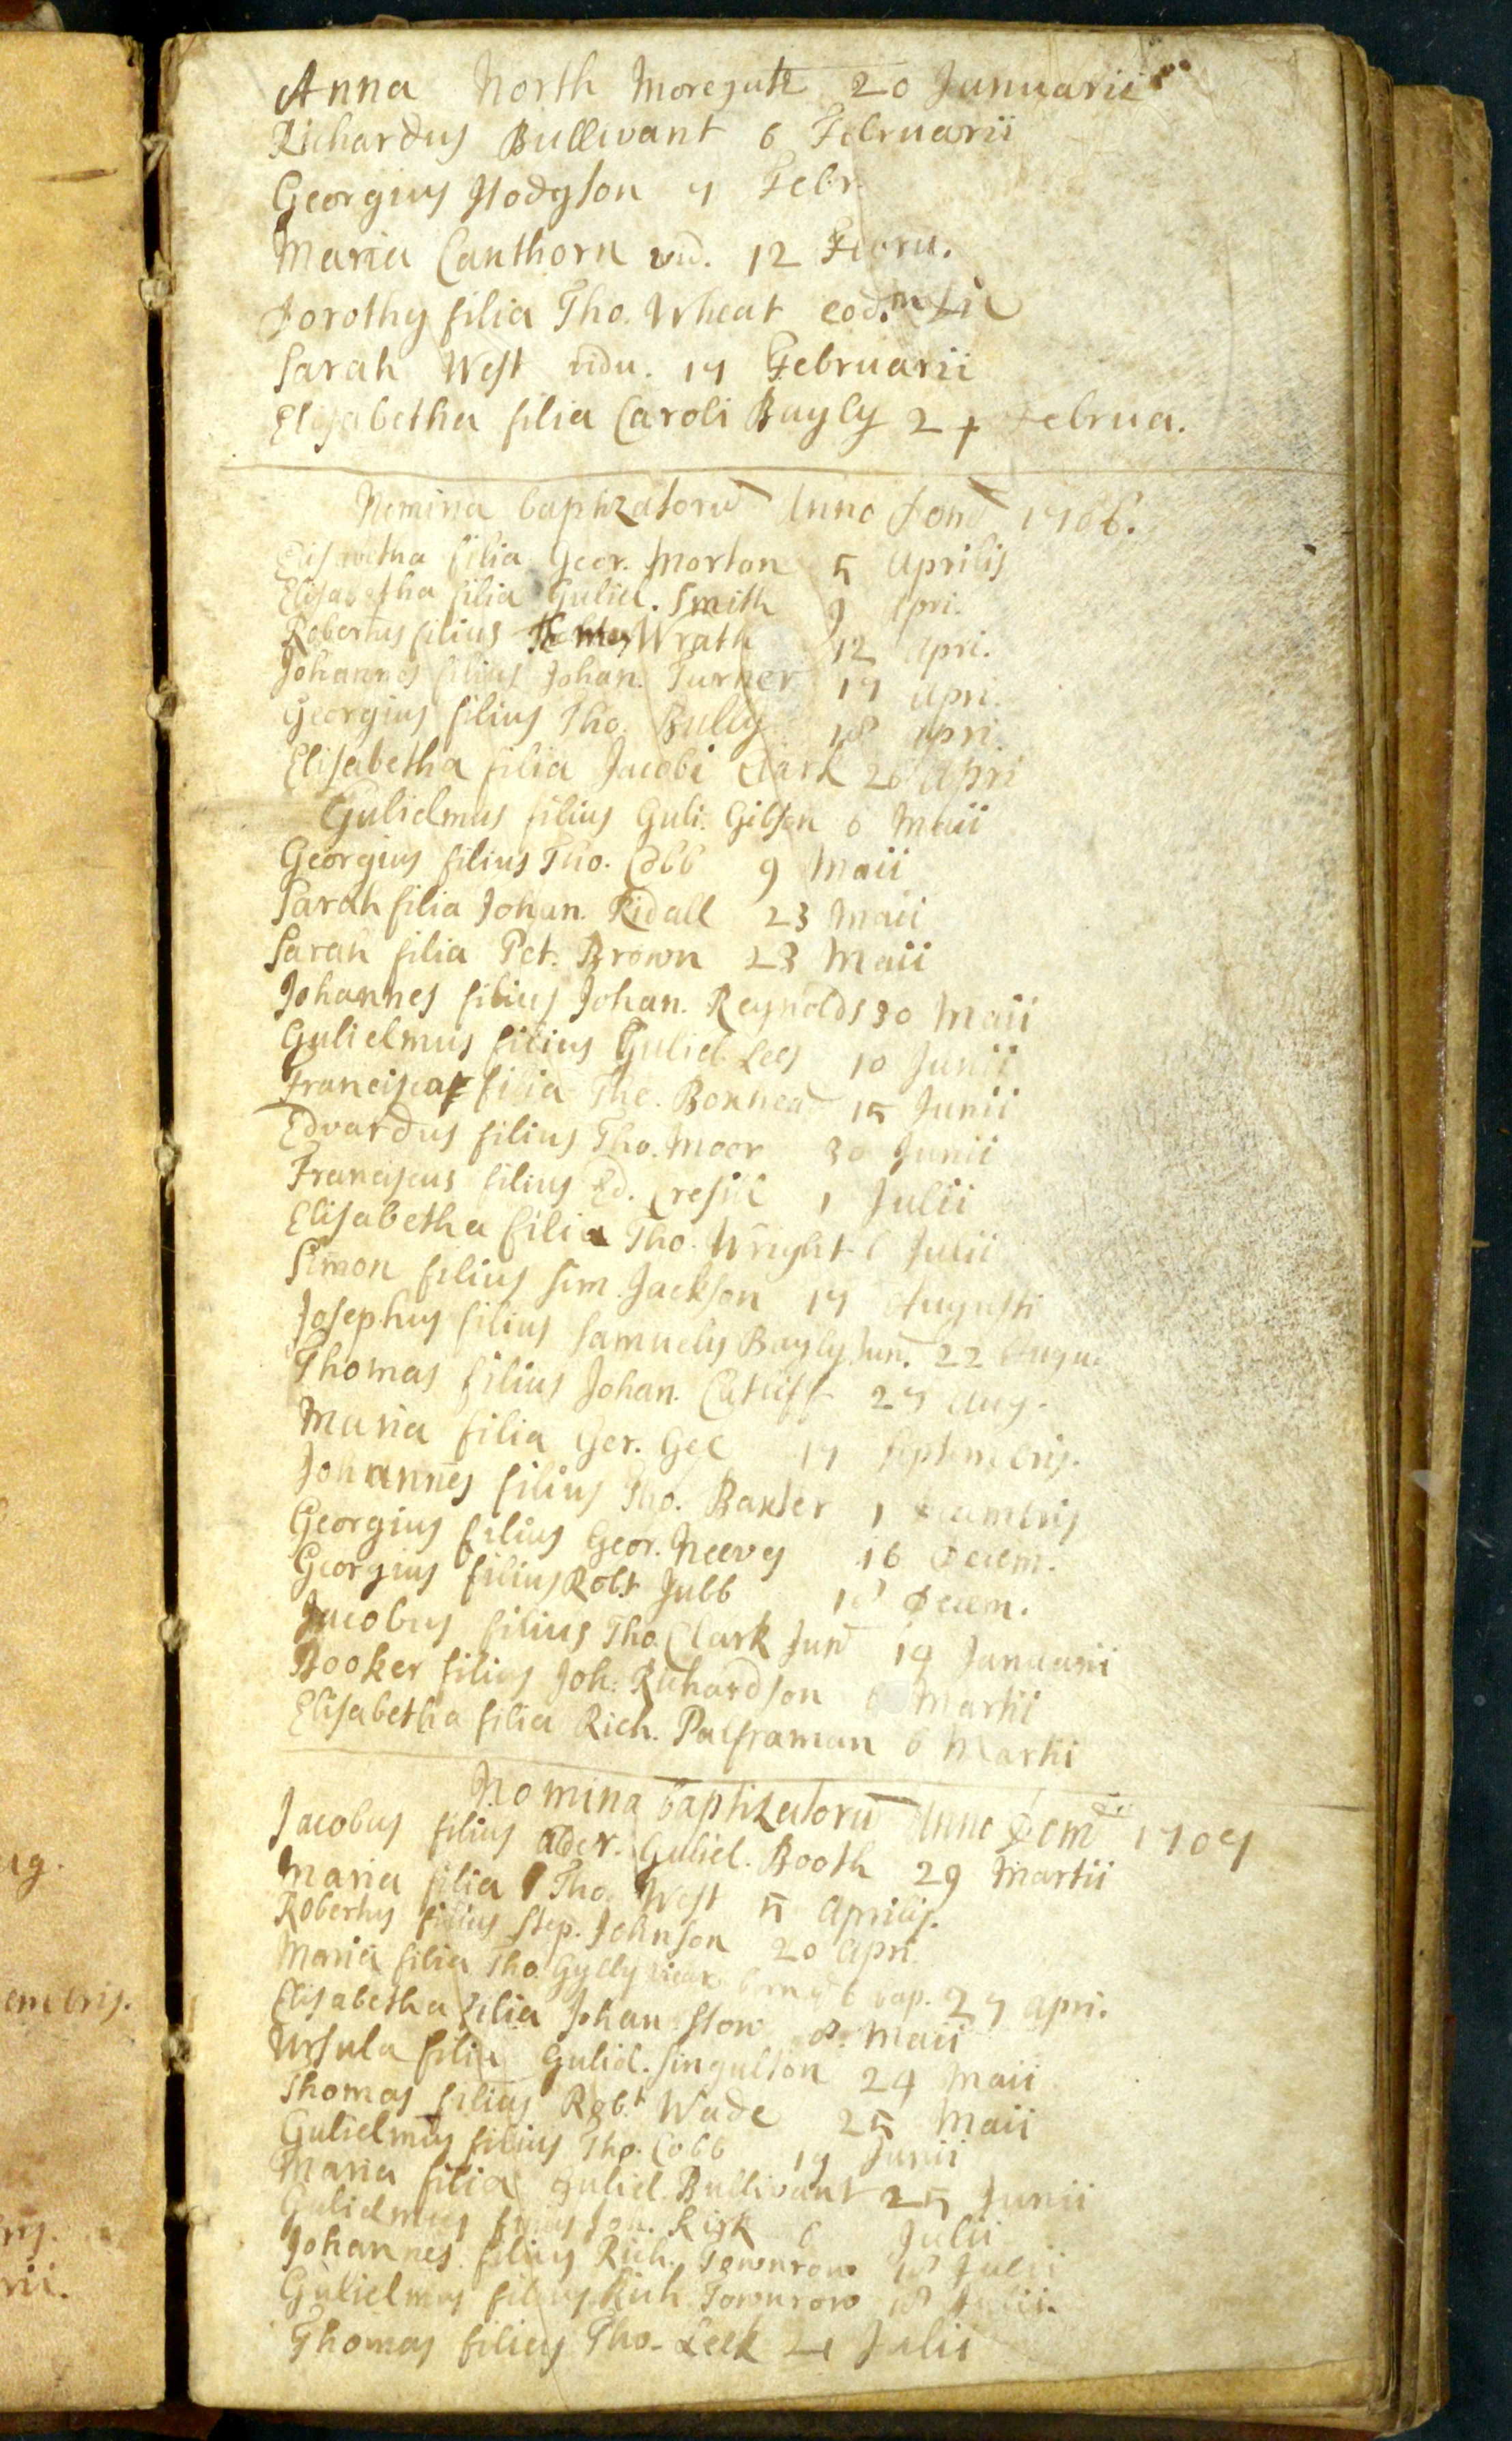 Anna North Moregate 20 Januarii
Richardus Bullivant 6 Februarii
Georgius Hodgson 7 Febr.
Maria Cauthorn vid. 12 Febru.
Dorothy filia Tho. Wheat eod.m die
Sarah West vidu. 17 Februarii
Elisabetha filia Caroli Bayly 24 Februa.
Nomina baptizatorū Anno Dom 1706.
Elisabetha filia Geor. Morton 5 Aprilis
Elisabetha filia Guliel. Smith 9 Apri.
Robertus filius Wrath 12 Apri.
Johannes filius Johan. Turner 17 Apri.
Georgius filius Tho. Bully 18 Apri.
Elisabetha filia Jacobi Clark 26 Apri
Gulielmus filius Guli. Gibson 6 Maii
Georgius filius Tho. Cobb 9 Maii
Sarah filia Johan. Ridall 23 Maii
Sarah filia Pet. Brown 23 Maii
Johannes filius Johan. Reynolds 30 Maii
Gulielmus filius Guliel. Lees 10 Junii
Francisca filia Tho. 15 Junii
Edvardus filius Tho. Moor 30 Junii
Franciscus filius Ed. 1 Julii
Elisabetha filia Tho. Wright 6 Julii
Simon filius Sim. Jackson 17 Augusti
Josephus filius Samuelis Bayly Jun. 22 Augu.
Thomas filius Johan. 27 Aug.
Maria filia Ger. Gee 17 Septembris.
Johannes filius Tho. Baxter 1 Decembris
Georgius filius Geor. Neevs 16 Decem.
Georgius filius Robt Jubb 18 Decem.
Jacobus filius Tho. Clark Jun 19 Januarii
Booker filius Joh: Richardson 6 Martii
Elisabetha filia Rich. Palframan 6 Martii
Nomina baptizatorū Anno Dom 1707
Jacobus filius Alder. Guliel. Booth 29 Martii
Maria filia Tho. West 5 Aprilis.
Robertus filius Step. Johnson 20 Apri.
Maria filia Tho. Gylby vicar born ye 6 bap. 27 Apri.
Elisabetha filia Johan Stow 8 Maii
Ursula filia Guliel. Singulton 24 Maii
Thomas filius Robt Wade 25 Maii
Gulielmus filius Tho. Cobb 19 Junii
Maria filia Guliel. Bullivant 25 Junii
Gulielmus filius Joh. Kirk 6 Julii
Johannes filius Rich. Townrow 18 Julii
Gulielmus filius Rich Townrow 18 Julii.
Thomas filius Tho. Leek 21 Julii
ug.
embris.
ris.
rii.